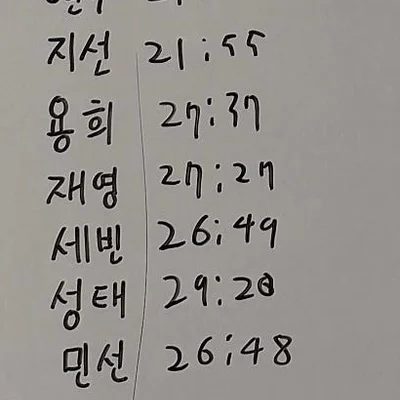 지선 21:55
용희 27:37
재영 27:27
세빈 26:49
성태 29:20
민선 26:48